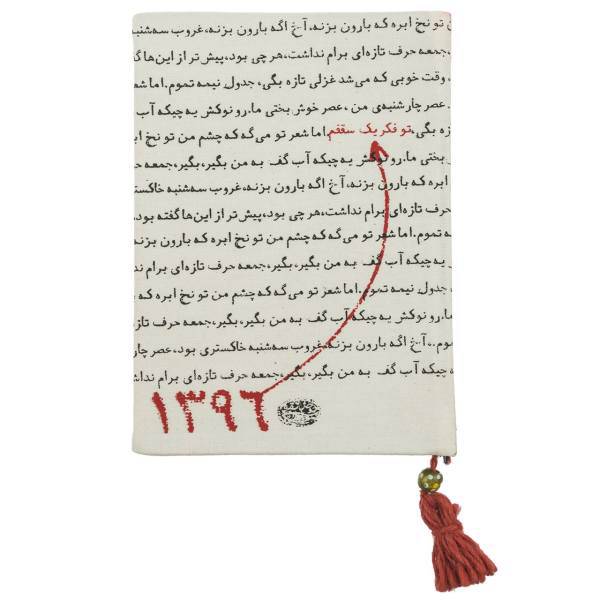 ن تو نخ ابره که بارون بزنه، آخ اگه بارون بزنه، غروب سه‌شنبه
،جمعه حرف تازه‌ای برام نداشت، هر چی بود، پیش‌تر از این‌ها گف
، وقت خوبی که می‌شد غزلی تازه بگی، جدول نیمه تموم. اما شعر
. عصر چارشنبه‌ی من ، عصر خوش بختی ما. رو نوکش یه چیکه آب
زه بگی، تو فکر یک سقفم. اما شعر تو می‌گه که چشم من تو نخ ابر
بختی ما. رو نوکش یه چیکه آب گف به من بگیر، بگیر، جمعه حر
ابره که بارون بزنه، آخ اگه بارون بزنه، غروب سه‌شنبه خاکستری
حرف تازه‌ای برام نداشت، هر چی بود، پیش‌تر از این‌ها گفته بود.
ه تموم. اما شعر تو می‌گه که چشم من تو نخ ابره که بارون بزنه
یه چیکه آب گف به من بگیر، بگیر، جمعه حرف تازه‌ای برام ند
جدول نیمه تموم. اما شعر تو می‌گه که چشم من تو نخ ابره که با
ما. رو نوکش یه چیکه آب گف به من بگیر، بگیر، جمعه حرف تازه
، آخ اگه بارون بزنه، غروب سه‌شنبه خاکستری بود، عصر چار
ه چیکه آب گف به من بگیر، بگیر، جمعه حرف تازه‌ای برام نداش
۱۳۹۶